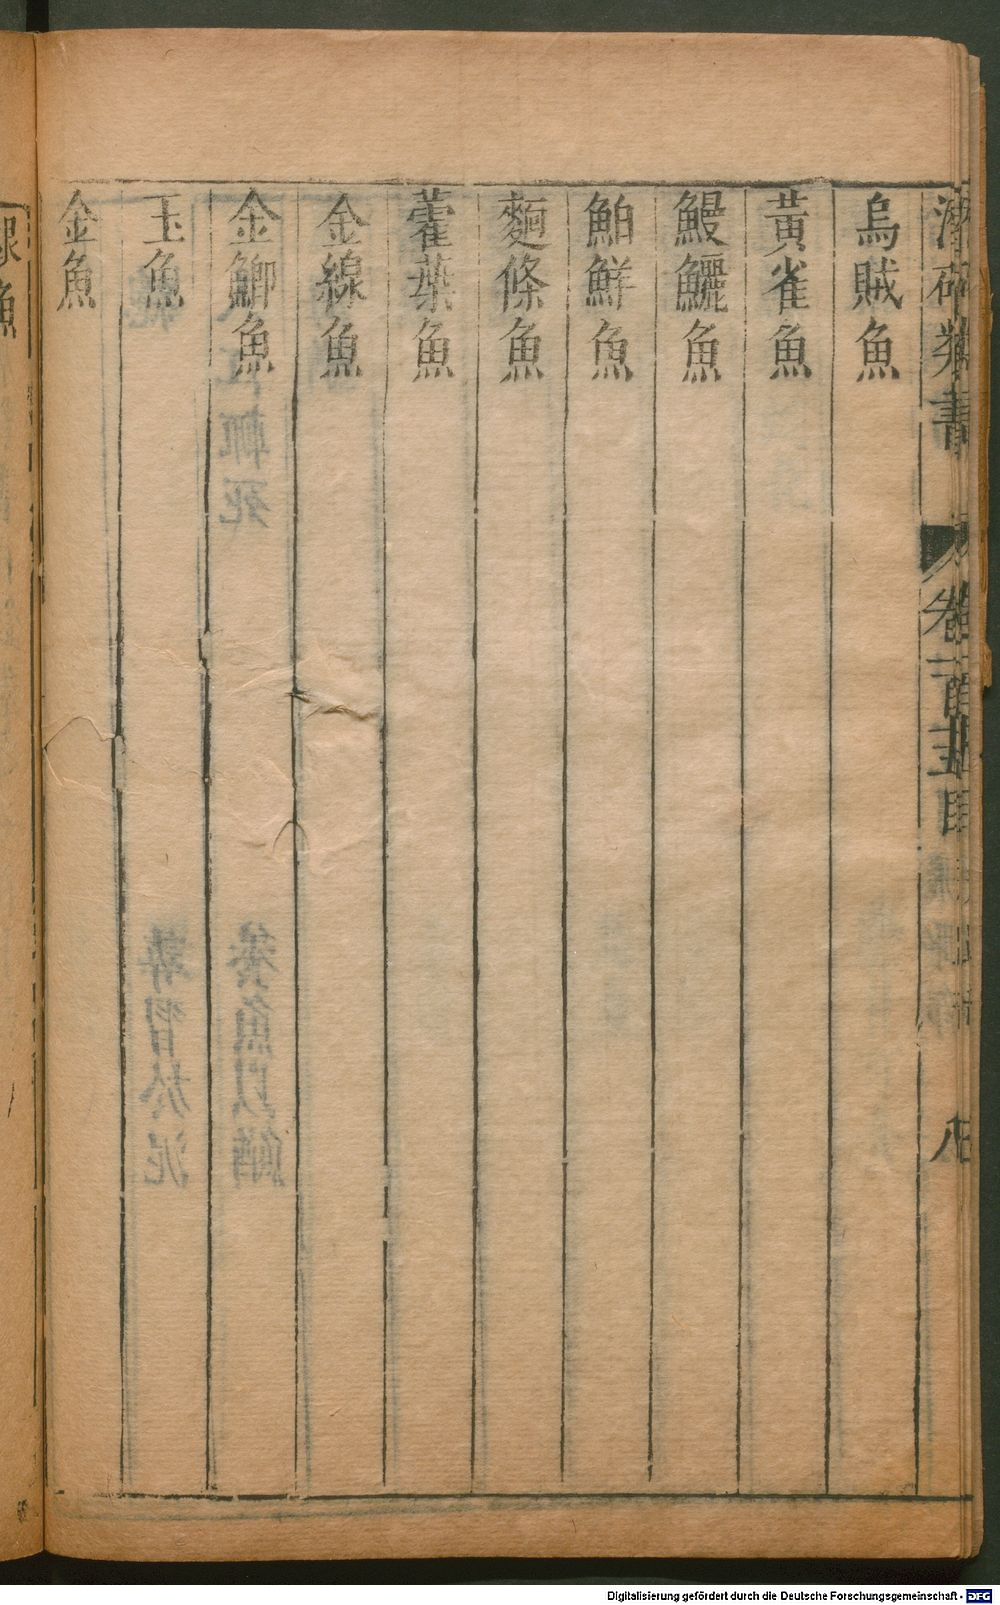 烏賊魚
黃雀魚
鰻鱺魚
鮊鮮魚
麵條魚
藿葉魚
金線魚
金鯽魚
玉魚
金魚
Digitalisierung gefördert durch die Deutsche Forschungsgemeinschaft - DFG